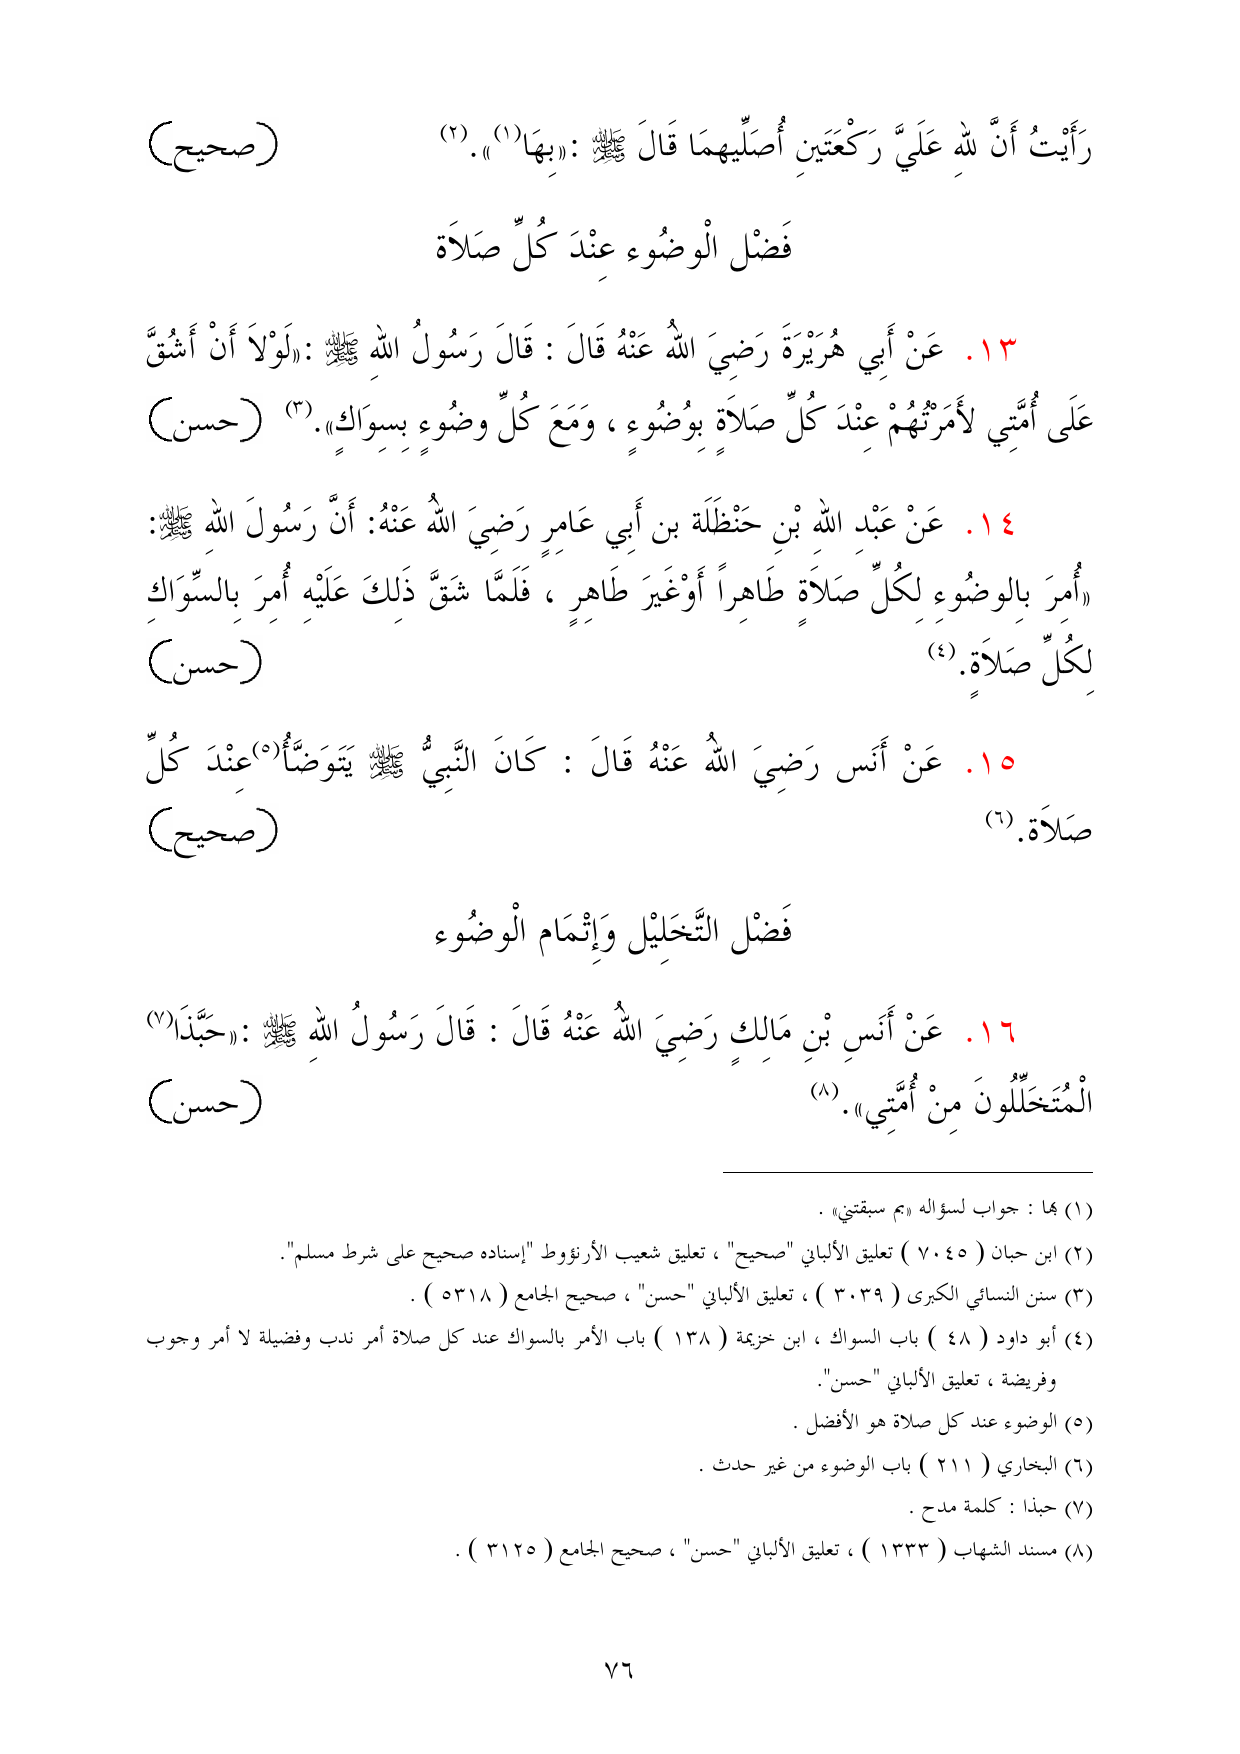 رَأَيْتُ أَنَّ للهِ عَلَيَّ رَكْعَتَينِ أُصَلِّيهمَا قَالَ ﷺ :«بِهَا(١)».(٢) (صحيح)
فَضْل الْوضُوء عِنْدَ كُلِّ صَلاَة
١٣. عَنْ أَبِي هُرَيْرَةَ رَضِيَ اللهُ عَنْهُ قَالَ : قَالَ رَسُولُ اللهِ ﷺ :«لَوْلاَ أَنْ أَشُقَّ
عَلَى أُمَّتِي لأَمَرْتُهُمْ عِنْدَ كُلِّ صَلاَةٍ بِوُضُوءٍ ، وَمَعَ كُلِّ وضُوءٍ بِسِوَاكٍ».(٣) (حسن)
١٤. عَنْ عَبْدِ اللهِ بْنِ حَنْظَلَة بن أَبِي عَامِرٍ رَضِيَ اللهُ عَنْهُ: أَنَّ رَسُولَ اللهِ ﷺ:
«أُمِرَ بِالوضُوءِ لِكُلِّ صَلاَةٍ طَاهِراً أَوْغَيرَ طَاهِرٍ ، فَلَمَّا شَقَّ ذَلِكَ عَلَيْهِ أُمِرَ بِالسِّوَاكِ
لِكُلِّ صَلاَةٍ.(٤) (حسن)
١٥. عَنْ أَنَس رَضِيَ اللهُ عَنْهُ قَالَ : كَانَ النَّبِيُّ ﷺ يَتَوَضَّأُ(٥)عِنْدَ كُلِّ
صَلاَة.(٦) (صحيح)
فَضْل التَّخَلِيْل وَإِتْمَام الْوضُوء
١٦. عَنْ أَنَسِ بْنِ مَالِكٍ رَضِيَ اللهُ عَنْهُ قَالَ : قَالَ رَسُولُ اللهِ ﷺ :«حَبَّذَا(٧)
الْمُتَخَلِّلُونَ مِنْ أُمَّتِي».(٨) (حسن)
(١) بها : جواب لسؤاله «بم سبقتني» .
(٢) ابن حبان ( ٧٠٤٥ ) تعليق الألباني "صحيح" ، تعليق شعيب الأرنؤوط "إسناده صحيح على شرط مسلم".
(٣) سنن النسائي الكبرى ( ٣٠٣٩ ) ، تعليق الألباني "حسن" ، صحيح الجامع ( ٥٣١٨ ) .
(٤) أبو داود ( ٤٨ ) باب السواك ، ابن خزيمة ( ١٣٨ ) باب الأمر بالسواك عند كل صلاة أمر ندب وفضيلة لا أمر وجوب
وفريضة ، تعليق الألباني "حسن".
(٥) الوضوء عند كل صلاة هو الأفضل .
(٦) البخاري ( ٢١١ ) باب الوضوء من غير حدث .
(٧) حبذا : كلمة مدح .
(٨) مسند الشهاب ( ١٣٣٣ ) ، تعليق الألباني "حسن" ، صحيح الجامع ( ٣١٢٥ ) .
٧٦